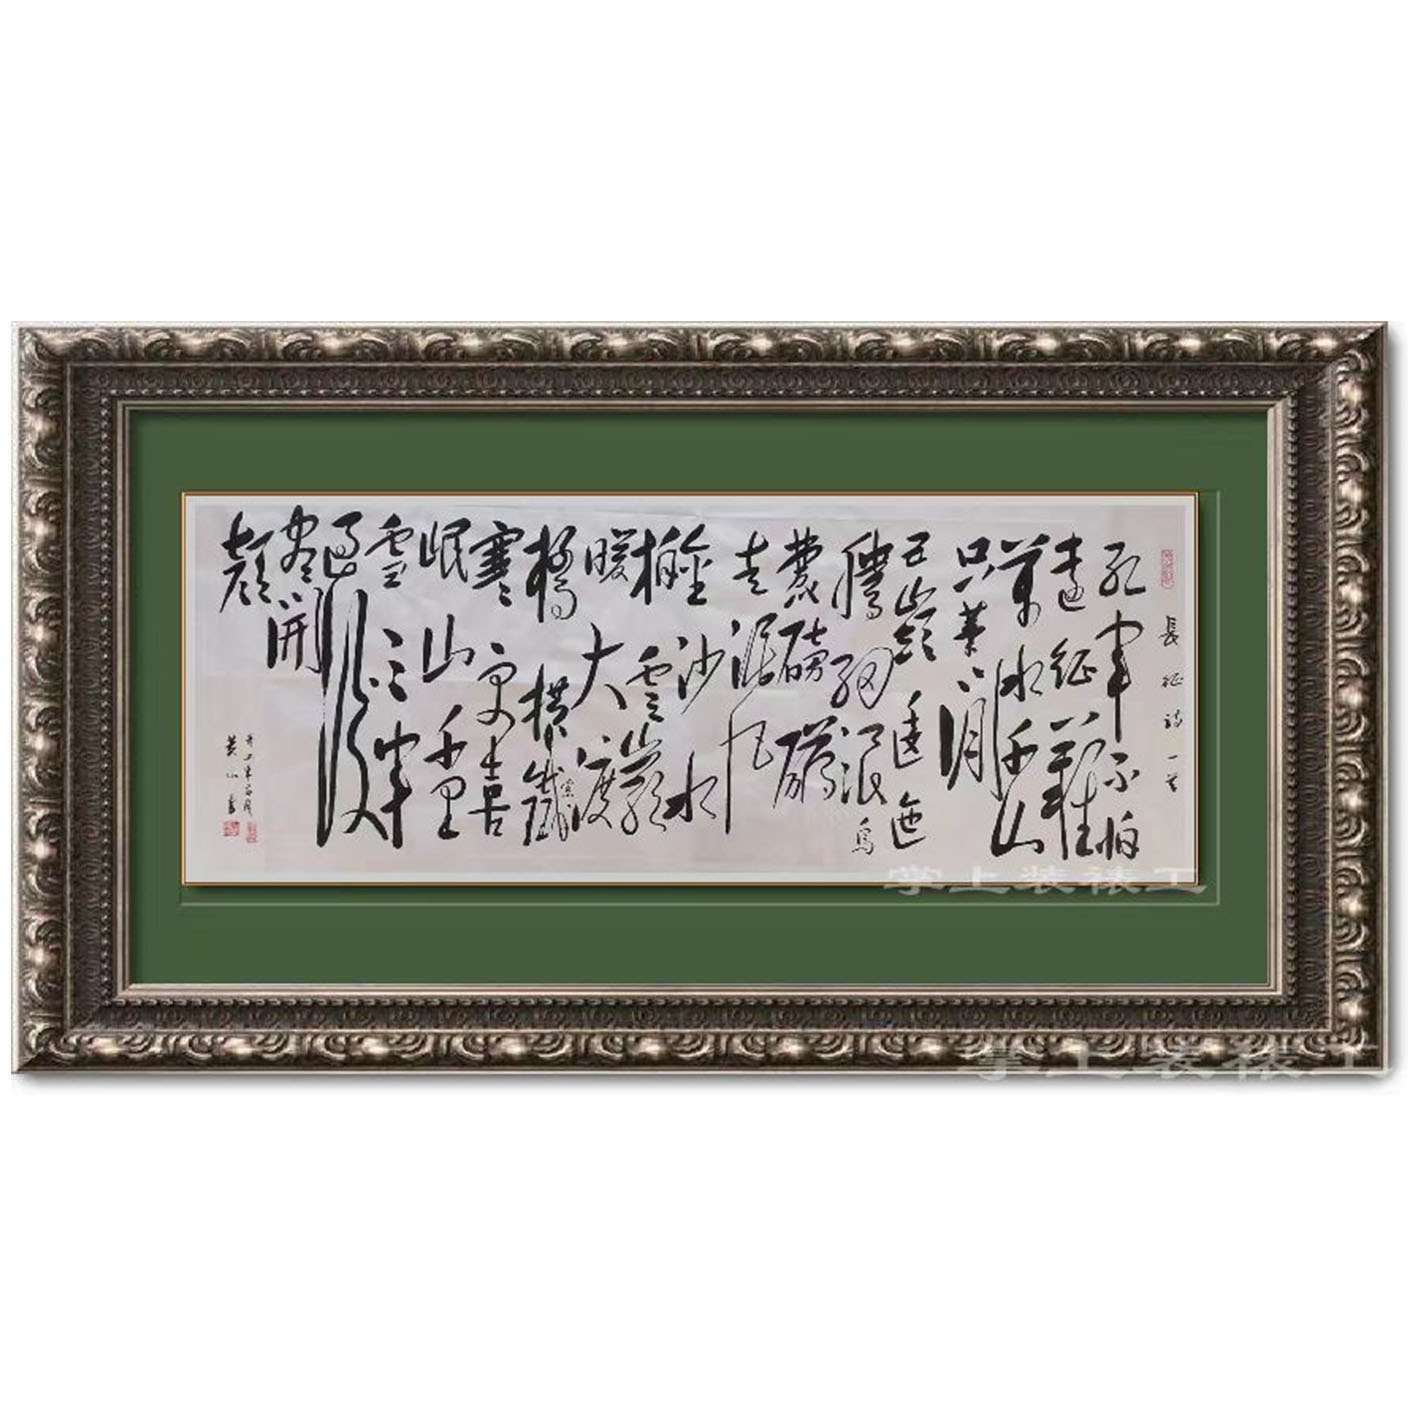 長征詩一首
紅軍不怕
遠征難
萬水千山
只等閒
五嶺逶迤
騰細浪烏
蒙磅礴
走泥丸
金沙水
拍雲巖
暖大渡
橋橫鐵索
寒更喜
岷山千里
雪三軍
過後
盡開
顏
掌上装裱工
掌上装裱工